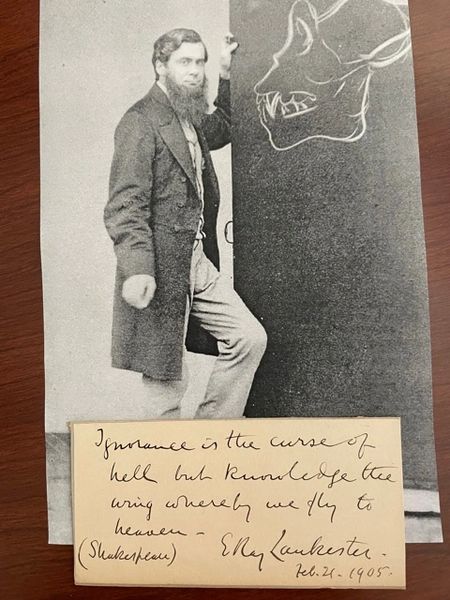 Ignorance is the curse of
hell but knowledge the
wing whereby we fly to
heaven -
(Shakespeare) E Ray Lankester.
Feb. 21. 1905.